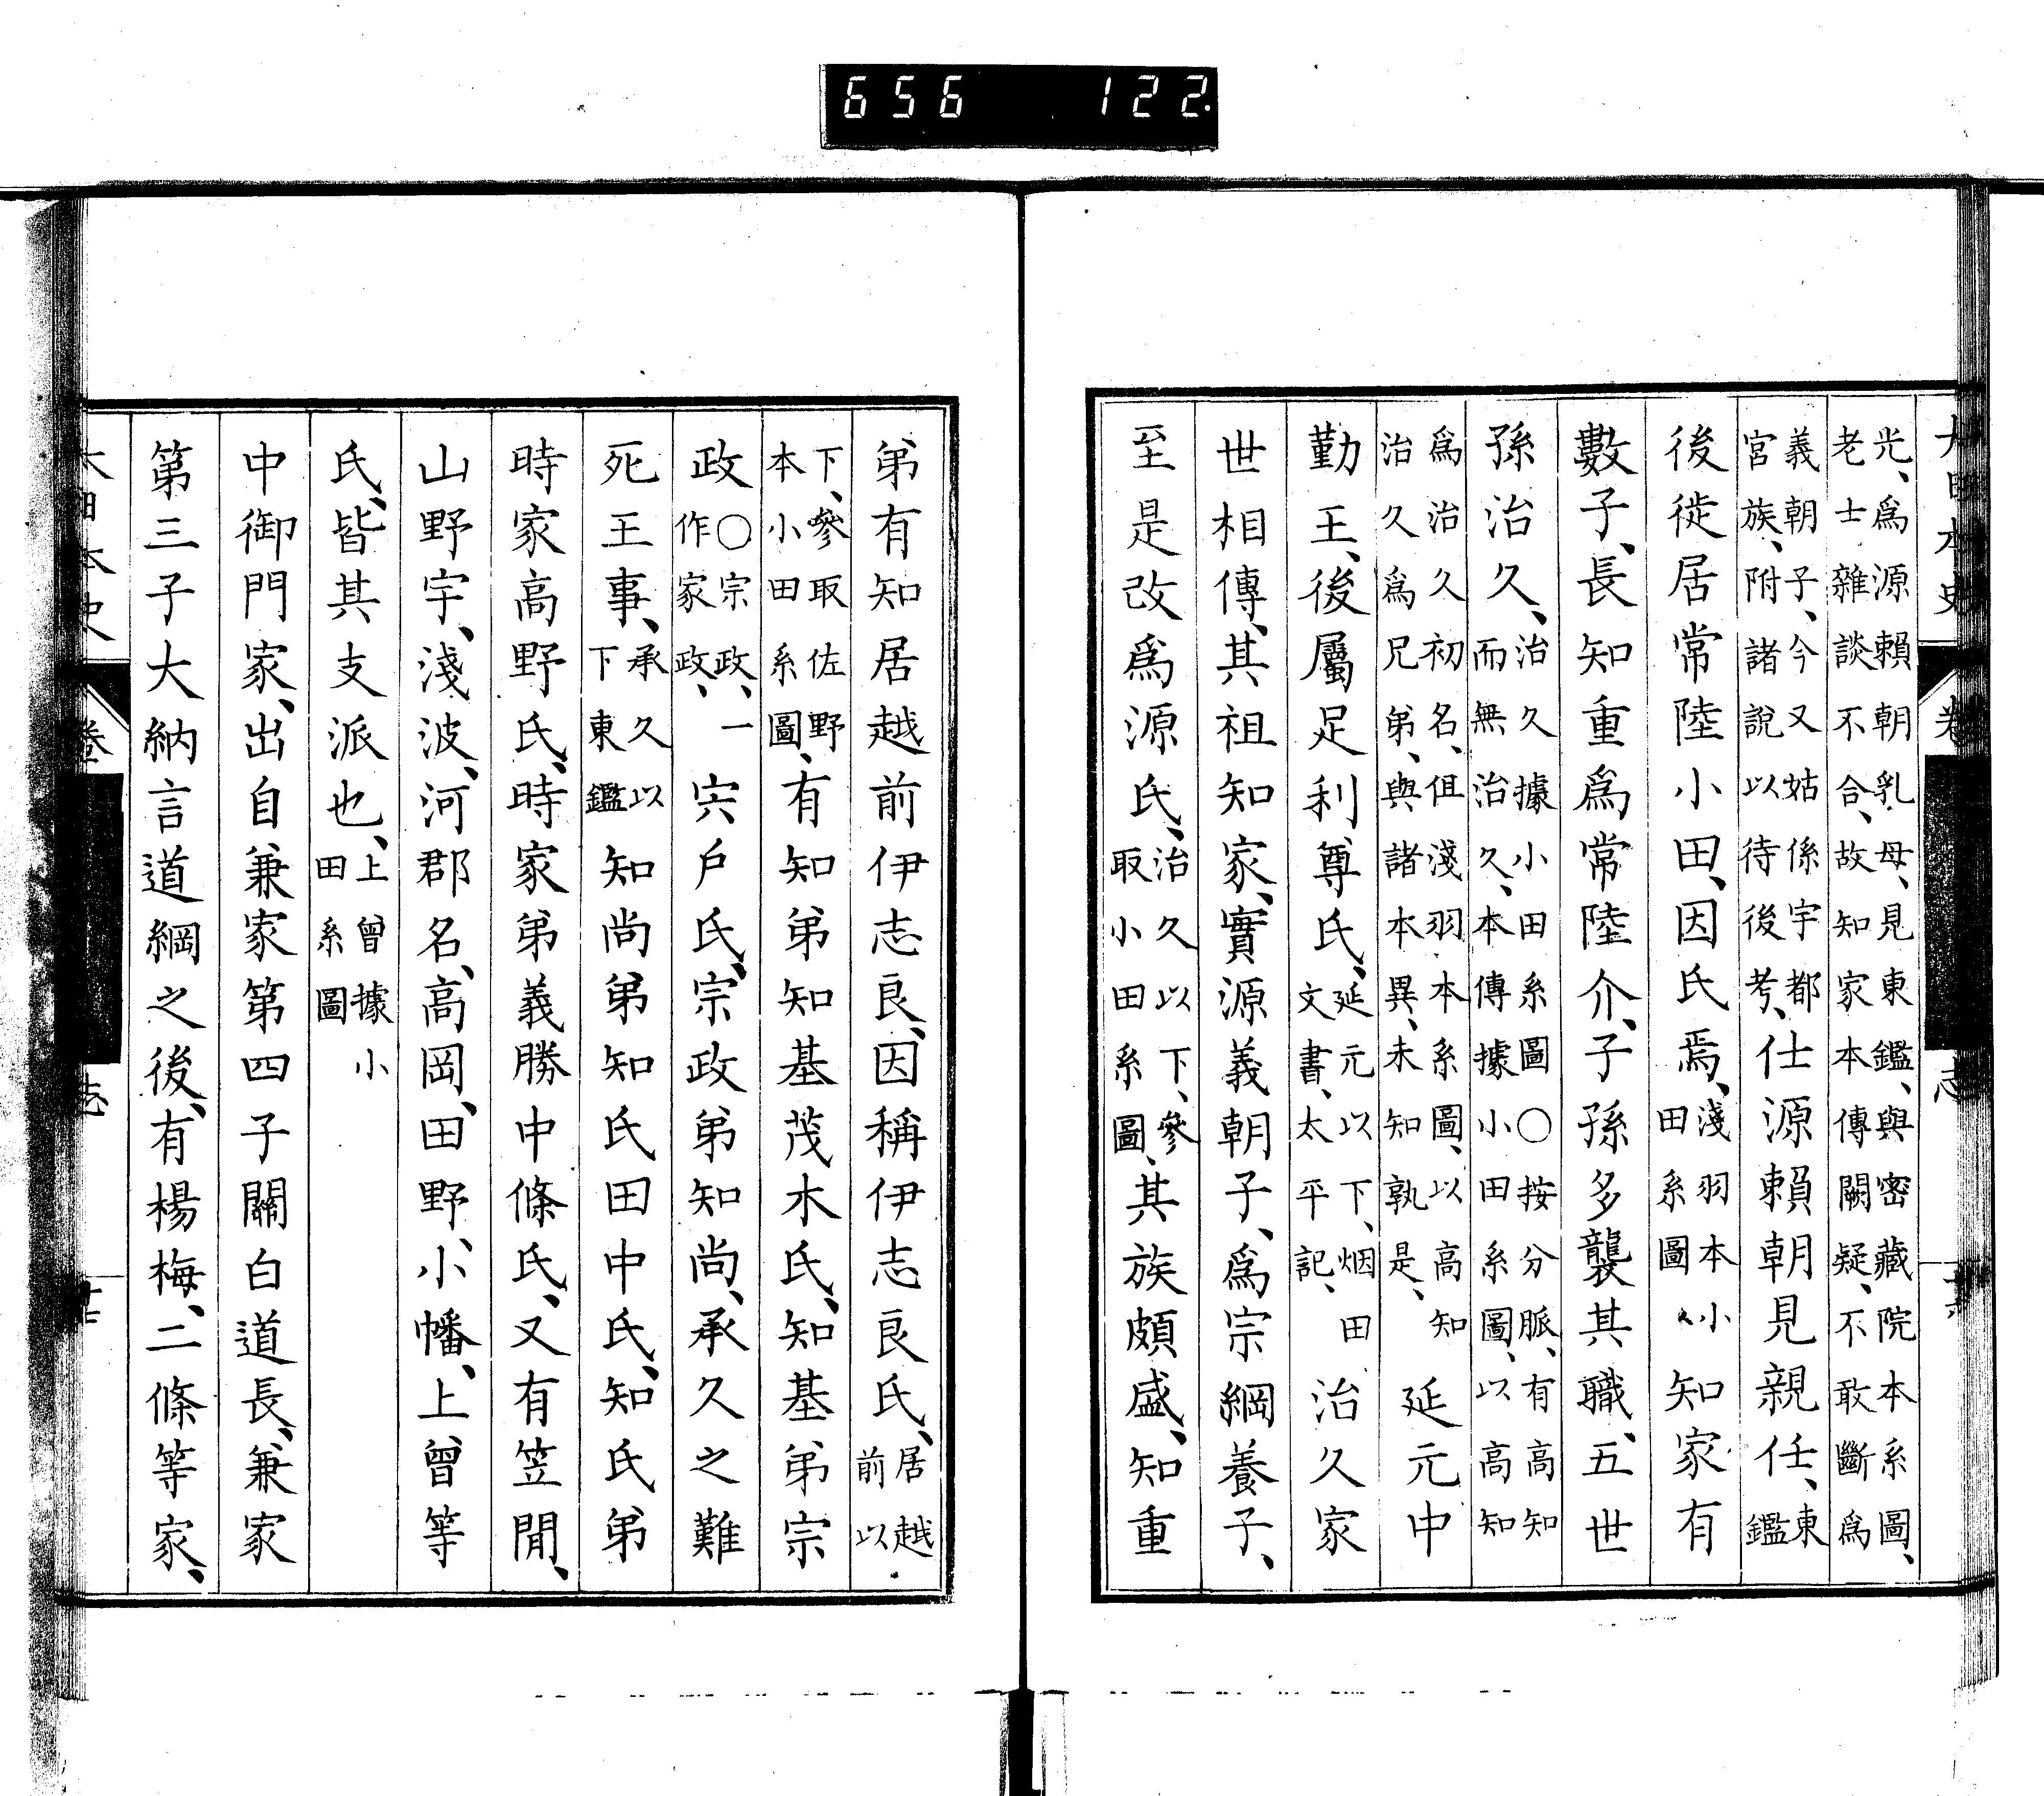 656 122.
大日本史 卷 志
光、爲源賴朝乳母、見東鑑、與密藏院本系圖、
老士雜談不合、故知家本傳闕疑、不敢斷爲
義朝子、今又姑係宇都宮族、附諸說以待後考、仕源賴朝見親任、東鑑
後徙居常陸小田、因氏焉、淺羽本小田系圖知家有
數子、長知重爲常陸介、子孫多襲其職、五世
孫治久、治久據小田系圖○按分脈、有高知而無治久、本傳據小田系圖、以高知
爲治久初名、伹淺羽本系圖、以高知治久爲兄弟、與諸本異、未知孰是、延元中
勤王、後屬足利尊氏、延元以下、烟田文書、太平記、治久家
世相傳、其祖知家、實源義朝子、爲宗綱養子、
至是改爲源氏、治久以下、參取小田系圖、其族頗盛、知重
弟有知居越前伊志良、因稱伊志良氏、居越前以
下、參取佐野本小田系圖、有知弟知基茂木氏、知基弟宗
政○宗政、一作家政、宍戶氏、宗政弟知尚、承久之難
死王事、承久以下東鑑知尚弟知氏田中氏、知氏弟
時家高野氏、時家弟義勝中條氏、又有笠間、
山野宇、淺波、河郡名、高岡、田野、小幡、上曾等
氏、皆其支派也、上曾據小田系圖
中御門家、出自兼家第四子關白道長、兼家
第三子大納言道綱之後、有楊梅、二條等家、
大日本史 卷 志